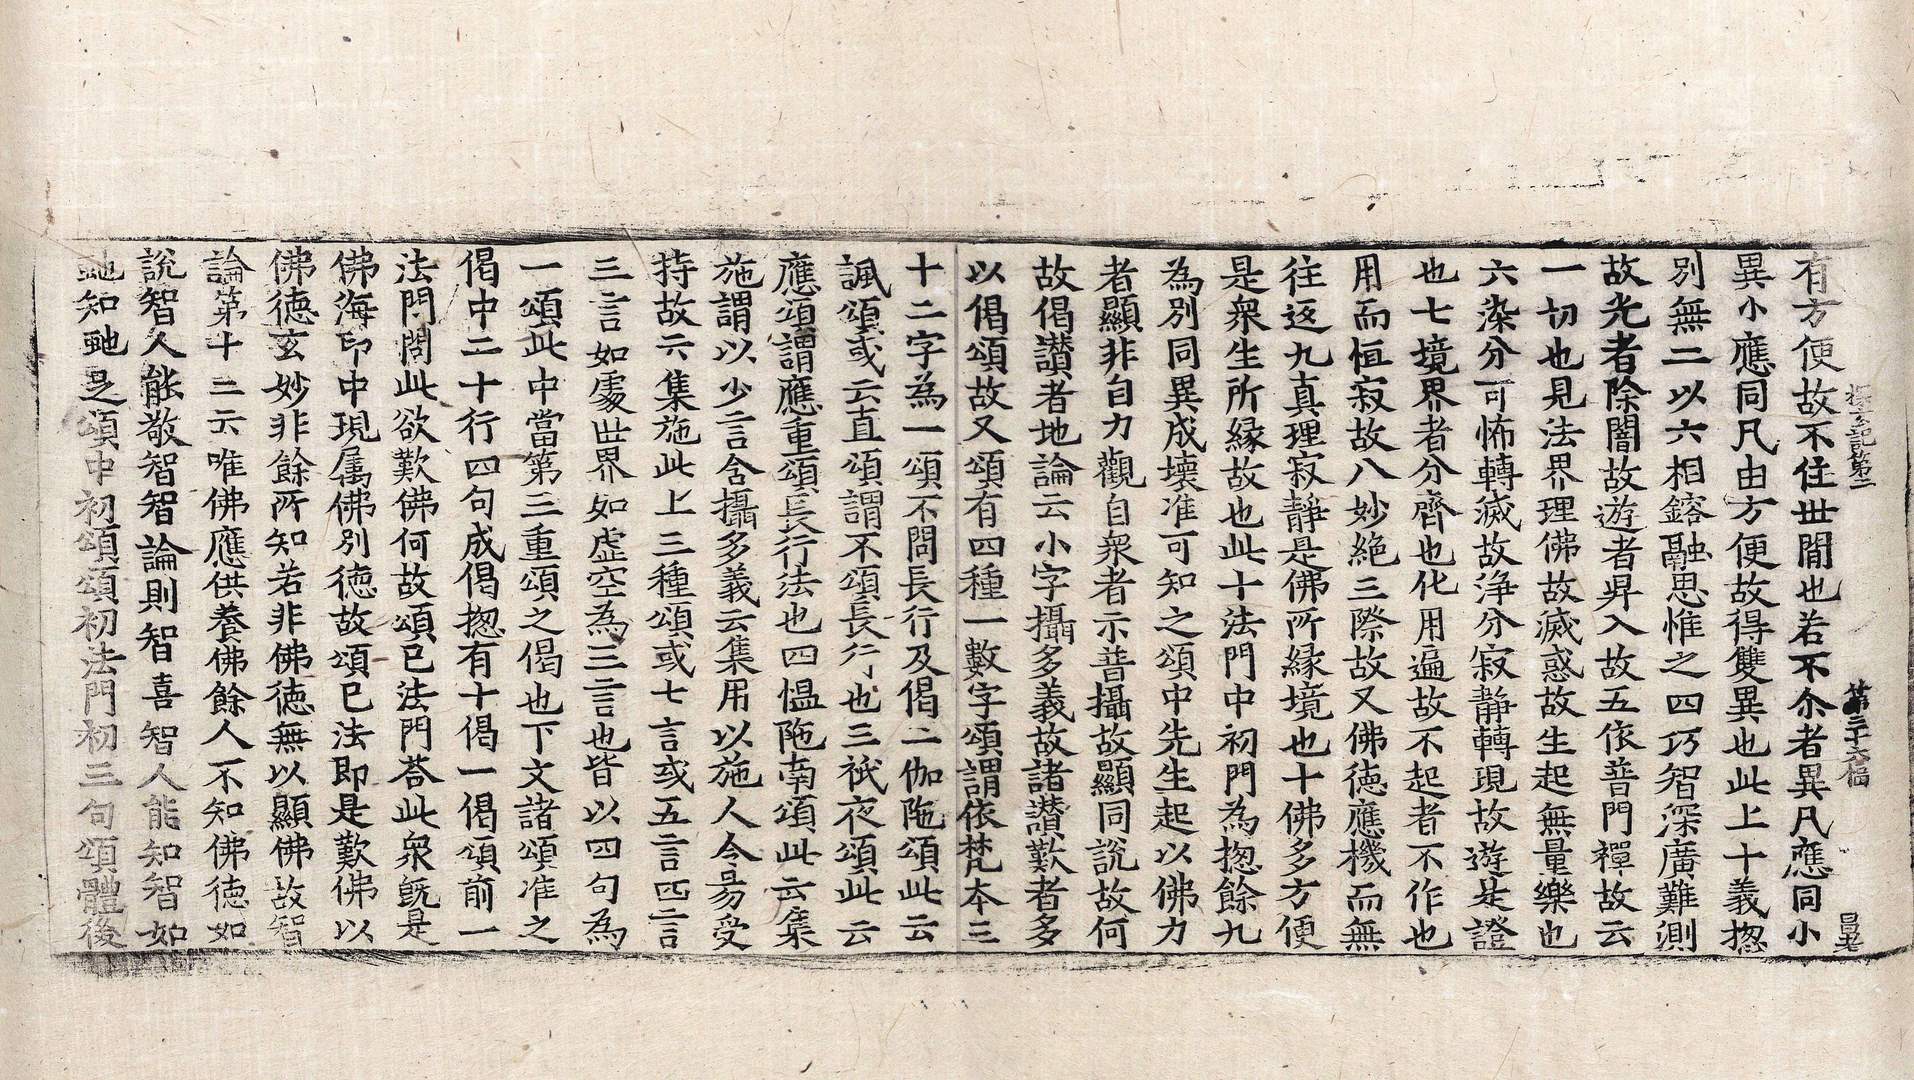 探玄記第二　第三十六幅　昌老
有方便故不住世間也若不尒者異凡應同小
異小應同凡由方便故得雙異也此上十義揔
別無二以六相鎔融思惟之四巧智深廣難測
故光者除闇故遊者昇入故五依普門禪故云
一切也見法界理佛故滅惑故生起無量樂也
六染分可怖轉滅故浄分寂靜轉現故遊是證
也七境界者分齊也化用遍故不起者不作也
用而恒寂故八妙絶三際故又佛徳應機而無
往返九真理寂靜是佛所縁境也十佛多方便
是衆生所縁故也此十法門中初門為揔餘九
為別同異成壊准可知之頌中先生起以佛力
者顯非自力觀自衆者示普攝故顯同說故何
故偈讃者地論云小字攝多義故諸讃歎者多
以偈頌故又頌有四種一數字頌謂依梵本三
十二字為一頌不問長行及偈二伽陁頌此云
諷頌或云直頌謂不頌長行也三祇夜頌此云
應頌謂應重頌長行法也四愠陁南頌此云集
施謂以少言含攝多義云集用以施人令易受
持故云集施此上三種頌或七言或五言四言
三言如處世界如虛空為三言也皆以四句為
一頌此中當第三重頌之偈也下文諸頌准之
偈中二十行四句成偈揔有十偈一偈頌前一
法門問此欲歎佛何故頌已法門荅此衆旣是
佛海印中現属佛別徳故頌已法即是歎佛以
佛德玄妙非餘所知若非佛徳無以顯佛故智
論第十二云唯佛應供養佛餘人不知佛徳如
說智人能敬智智論則智喜智人能知智如
虵知虵足頌中初頌頌初法門初三句頌體後